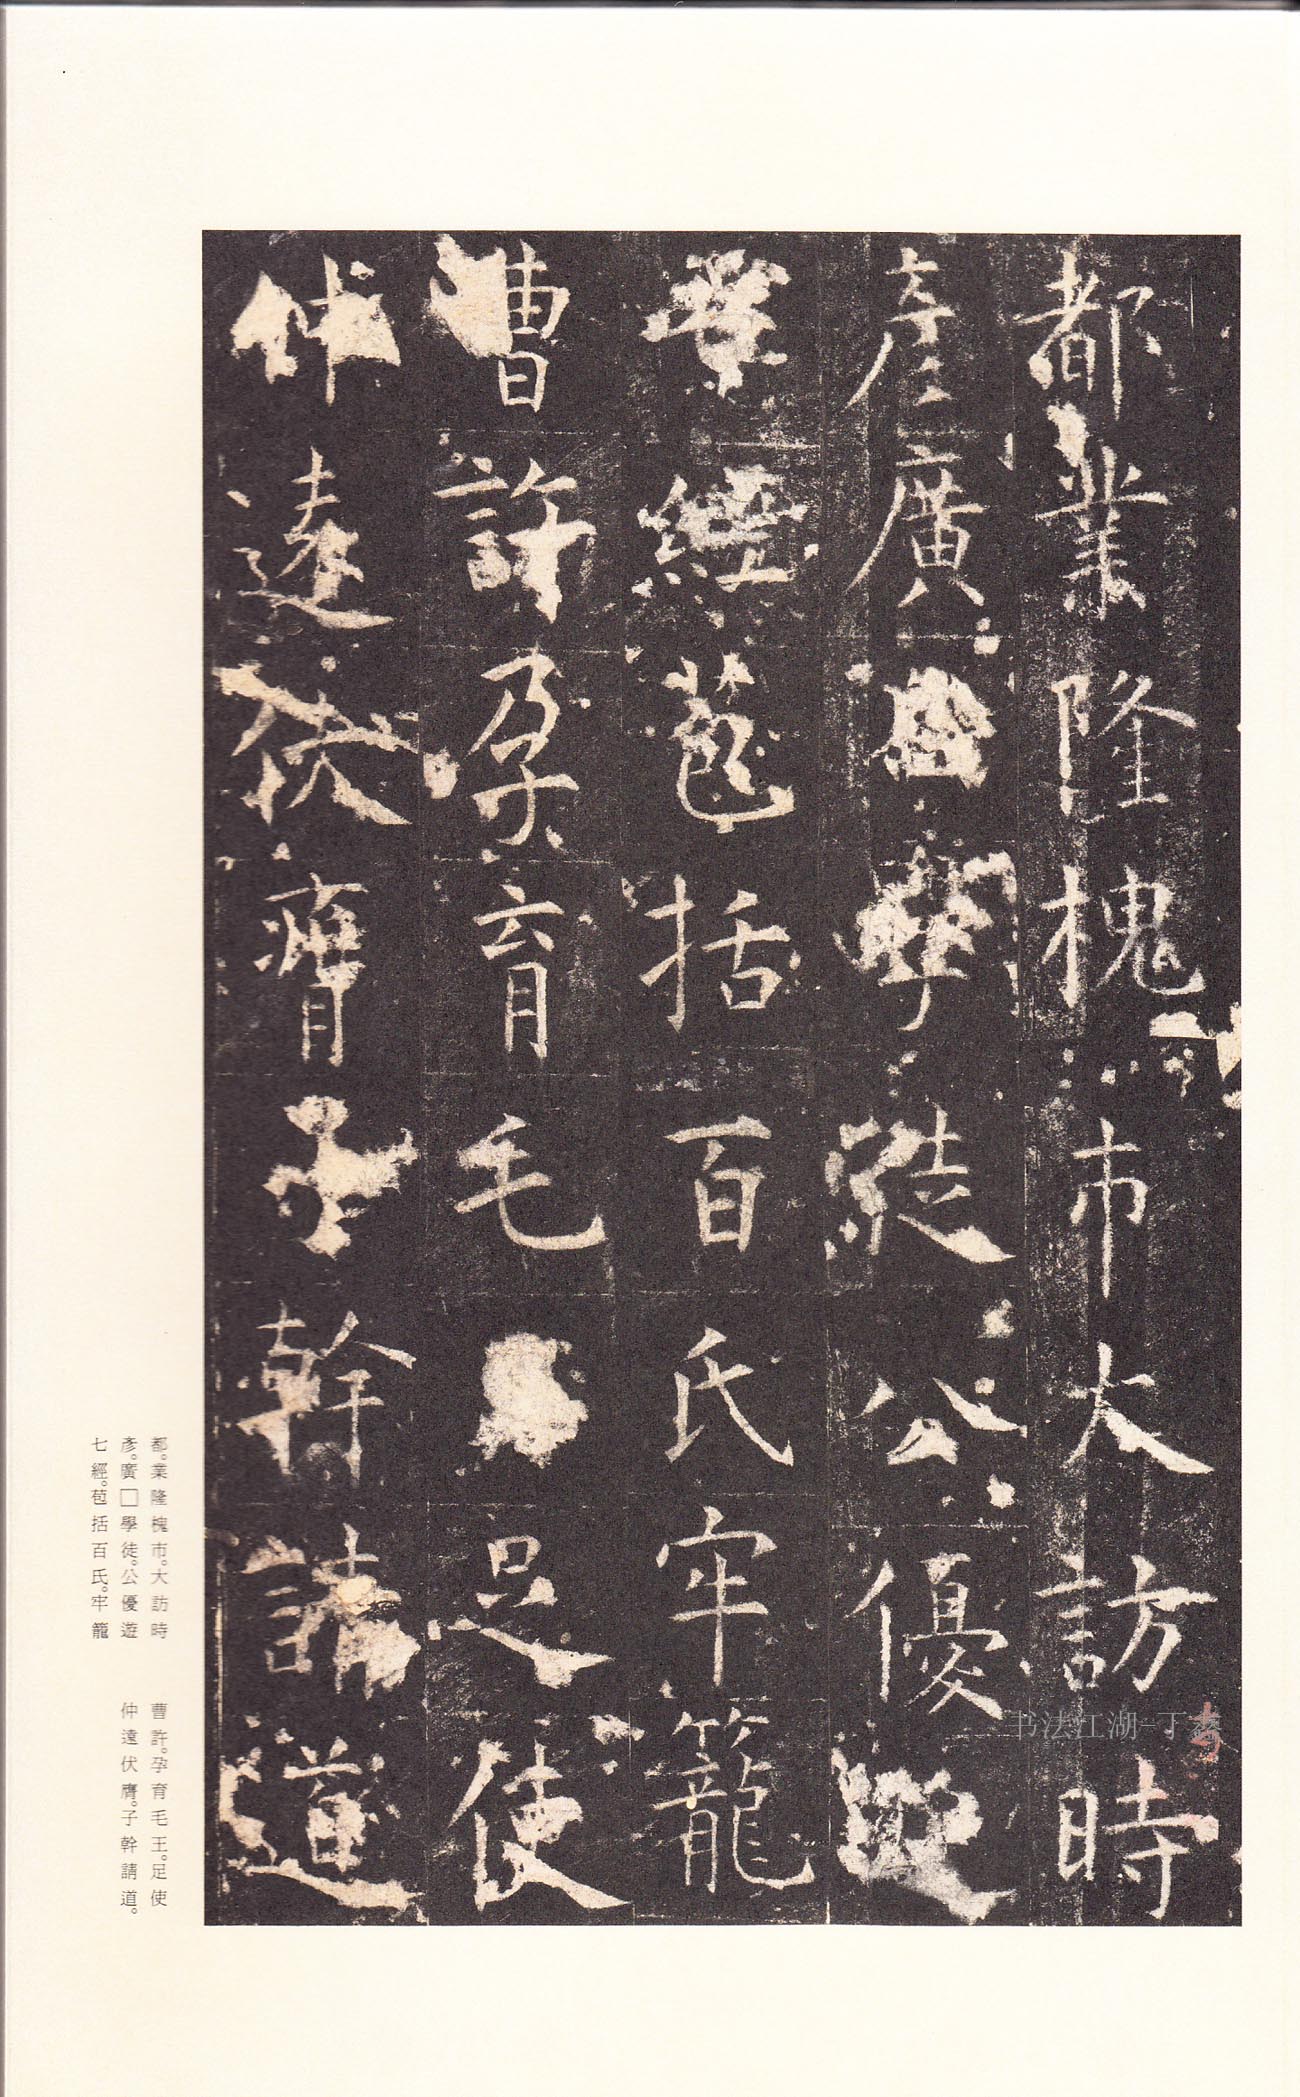 都業隆槐市大訪時
彦廣學徒公優
經苞括百氏牢籠
曹許孕育毛足使
仲遠伏膺子幹請道
都。業隆槐市。大訪時
彥。廣□學徒。公優遊
七經。苞括百氏。牢籠
曹許。孕育毛王。足使
仲遠伏膺。子幹請道。
书法江湖-丁